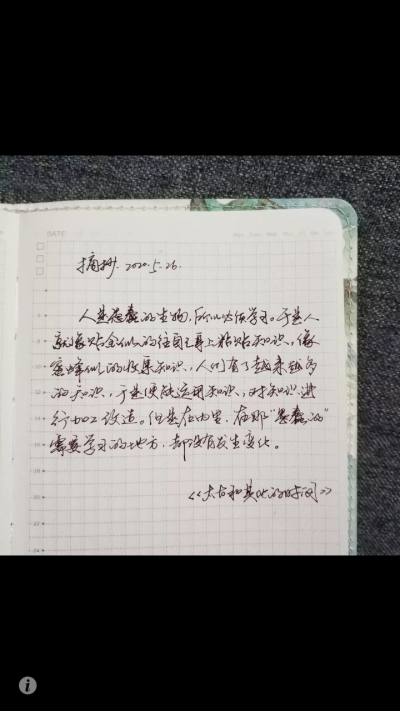 DATE:
摘抄. 2020.5.26.
人是愚蠢的生物,所以必须学习。于是人
就像贴金似的往自己身上粘贴知识、像
蜜蜂似的收集知识,人们有了越来越多
的知识,于是便能运用知识、对知识进
行加工改造。但是在内里,在那“愚蠢的”
需要学习的地方,却没有发生变化。
《大台和其他的时间》